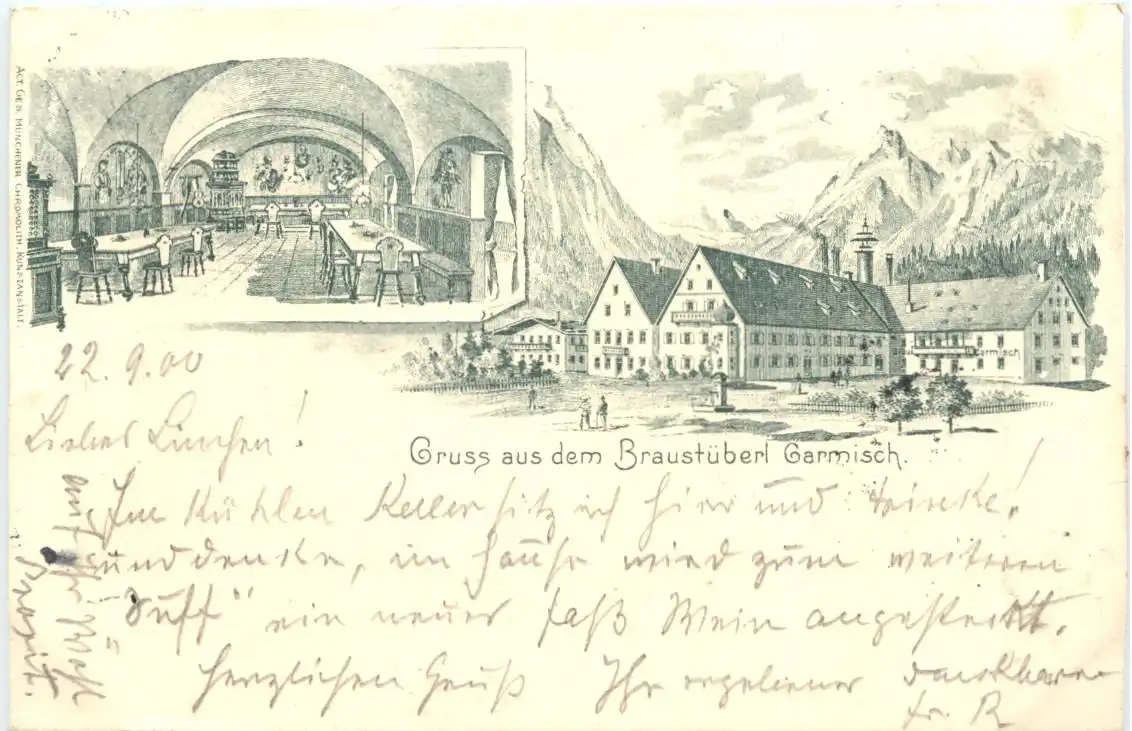 ACT. GES. MÜNCHENER CHROMOLITH. KUNSTANSTALT.
Garmisch
22. 9. 00
Liebes Linchen!
Gruss aus dem Braustüberl Garmisch.
„Im kühlen Keller sitz ich hier und trinke!
und denke, im Hause wird zum weiteren
„Suff" ein neues Faß Wein angesteckt.
Herzlichen Gruß Ihr ergebener dankbarer
Fr. R
auf Ihr Wohl
Prosit.